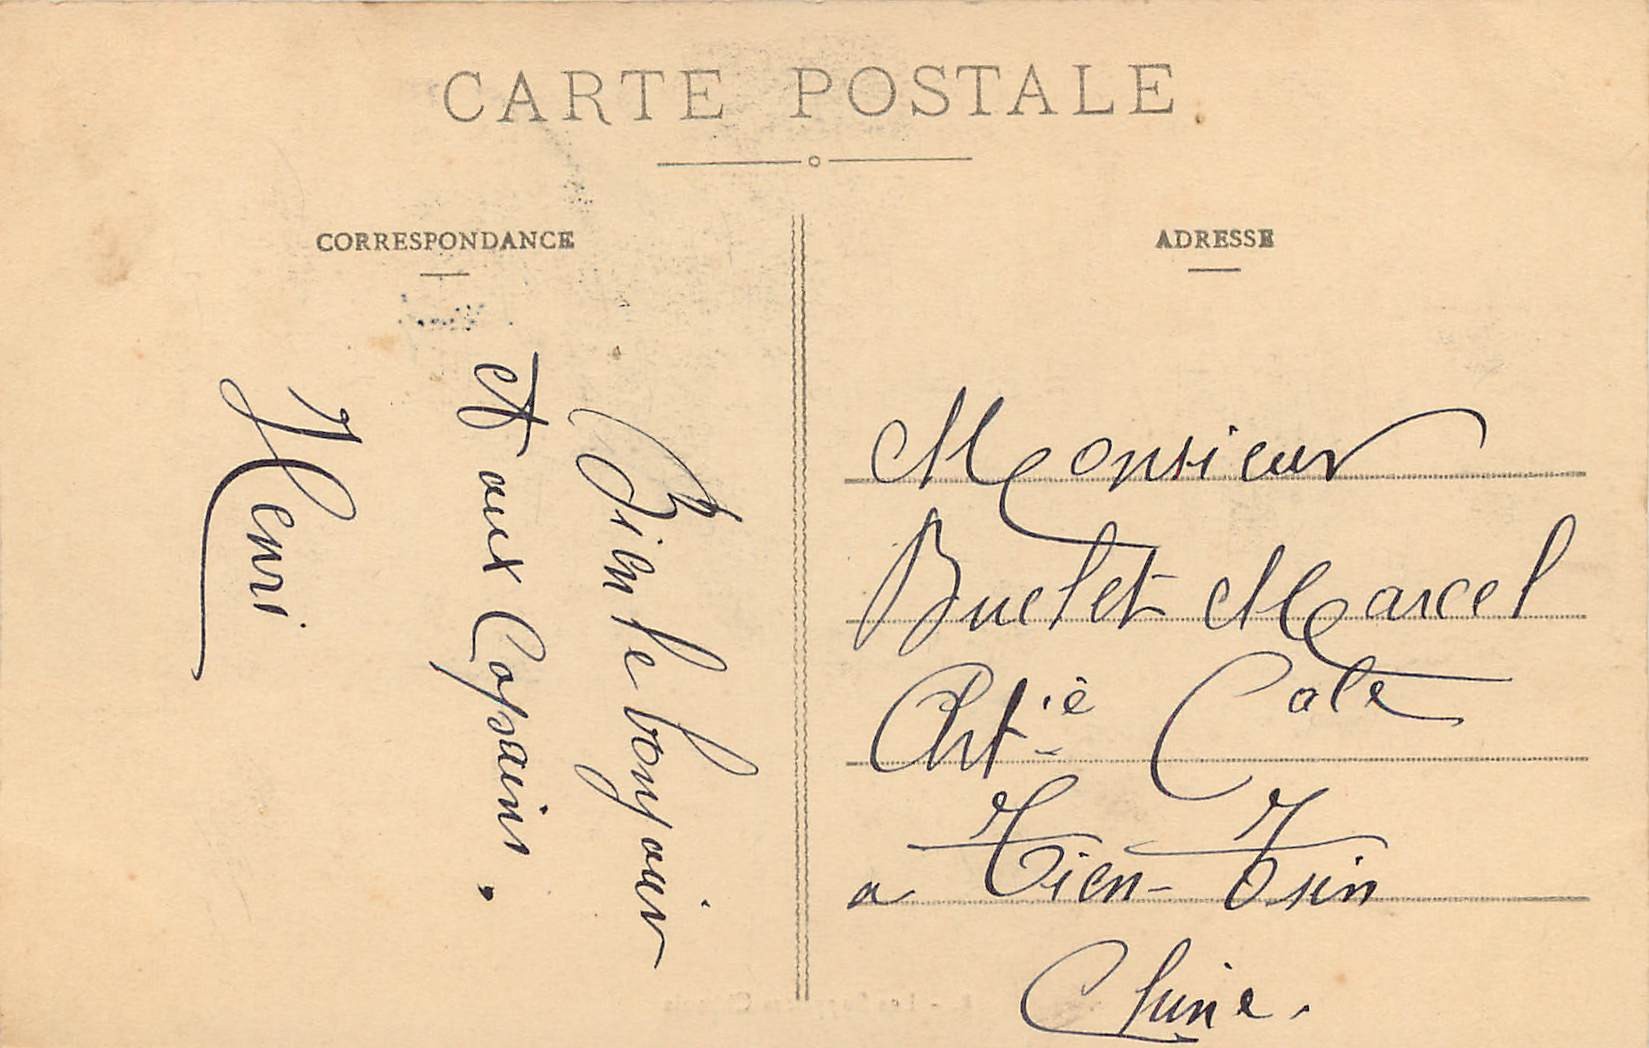 CARTE POSTALE
CORRESPONDANCE
Bien le bonjour
et aux Copains.
Henri
ADRESSE
Monsieur
Buclet Marcel
Art.ie Cole
a Tien-Tsin
Chine.